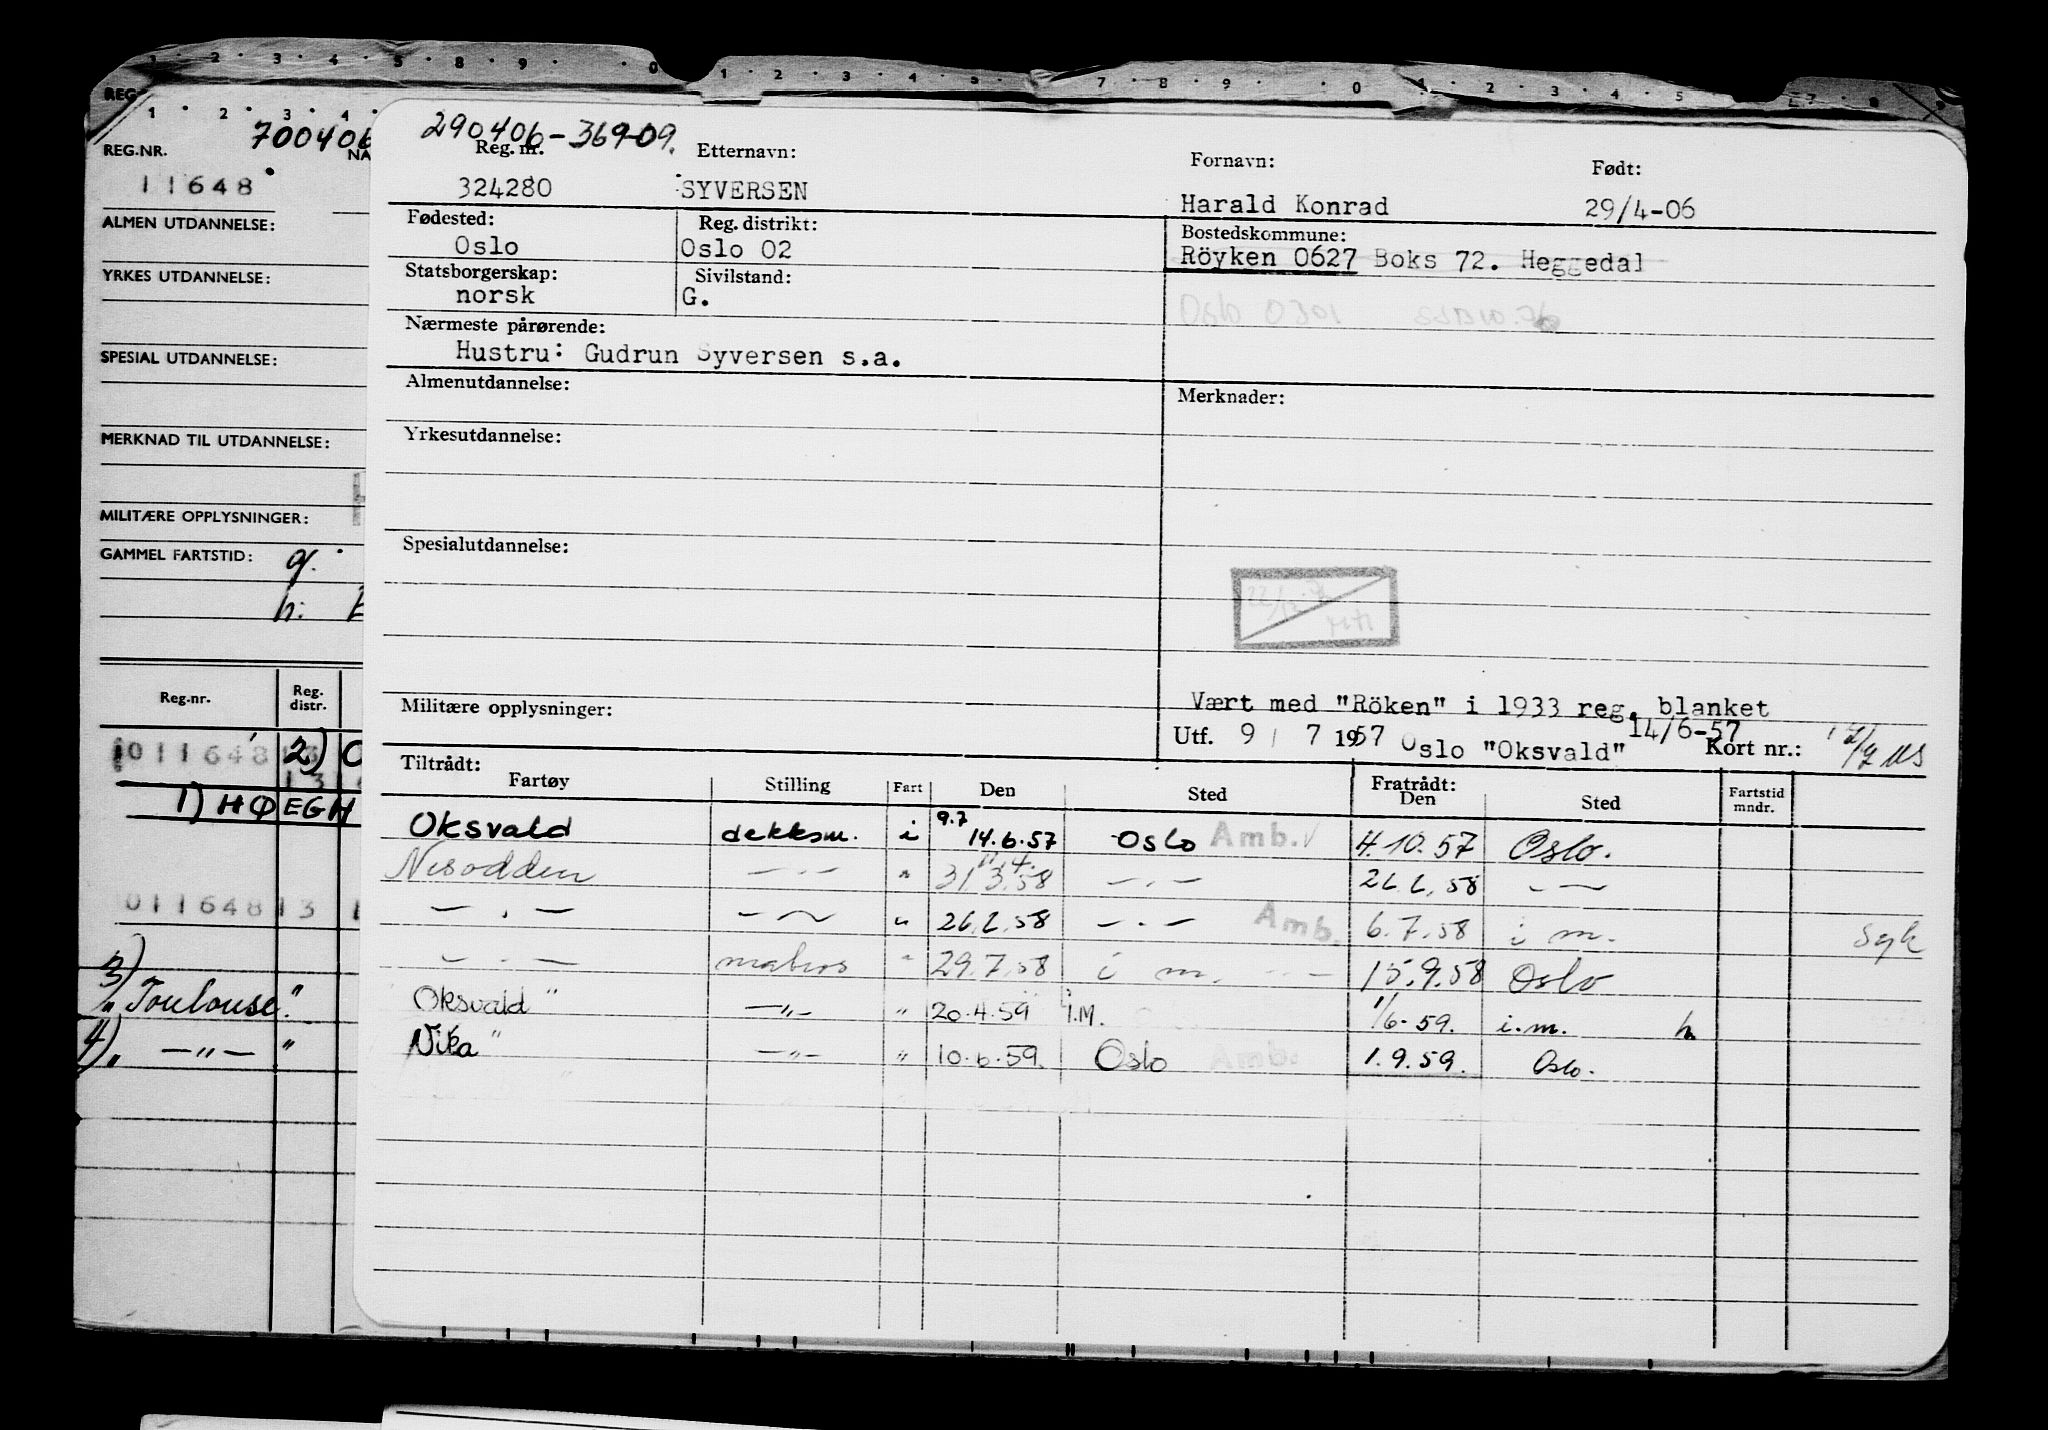 1 2 3 4 5 8 9 0 1 2 3 4 5 7 8 9 0 1 2 3 4 5 7 8 9
REG
1 2 3 4
700406
REG.NR. NA
11648
ALMEN UTDANNELSE:
YRKES UTDANNELSE:
SPESIAL UTDANNELSE:
MERKNAD TIL UTDANNELSE:
MILITÆRE OPPLYSNINGER:
GAMMEL FARTSTID: g.
h:
Reg.nr. Reg. distr.
011648 13 2) O
13
1) HØEGH
011648 13 1
3)
" Toulouse"
4) " —"— "
290406-36909.
Reg. nr. Etternavn: Fornavn: Født:
324280 SYVERSEN Harald Konrad 29/4-06
Fødested: Reg. distrikt: Bostedskommune:
Oslo Oslo 02 Röyken 0627 Boks 72. Heggedal
Statsborgerskap: Sivilstand:
norsk G. Oslo 0301
Nærmeste pårørende:
Hustru: Gudrun Syversen s.a.
Almenutdannelse: Merknader:
Yrkesutdannelse:
Spesialutdannelse:
Militære opplysninger: Vært med "Röken" i 1933 reg. blanket
14/6-57
Utf. 9 / 7 1957 Oslo "Oksvald" Kort nr.:
Tiltrådt: Fratrådt:
Fartøy Stilling Fart Den Sted Den Sted Fartstid mndr.
9.7
Oksvald dekksm. i 14.6.57 Oslo Amb. 4.10.57 Oslo.
11.4.
Nesodden —.— " 31.3.58 —.— 26.6.58 — —
—.— —.— " 26.6.58 —.— Amb. 6.7.58 i m. Syk
—.— matros " 29.7.58 i m. 15.9.58 Oslo
Oksvald " —"— " 20.4.59 i.M. 1/6-59. i.m. h
Nika " —"— " 10.6.59. Oslo Amb. 1.9.59. Oslo.